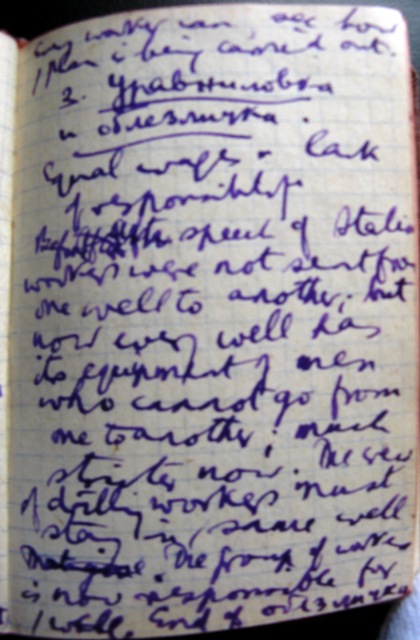 any worker can, see how
/ Plan is being carried out.
3. Уравниловка
и обезличка.
Equal wages - lack
of responsibility
speech of Stalin
workers were not sent from
one well to another; but
now every well has
its equipment of men
who cannot go from
one to another; much
stricter now. The crew
of drilling workers must
stay in same well.
The group of workers
is now responsible for
1 well. End of обезличка